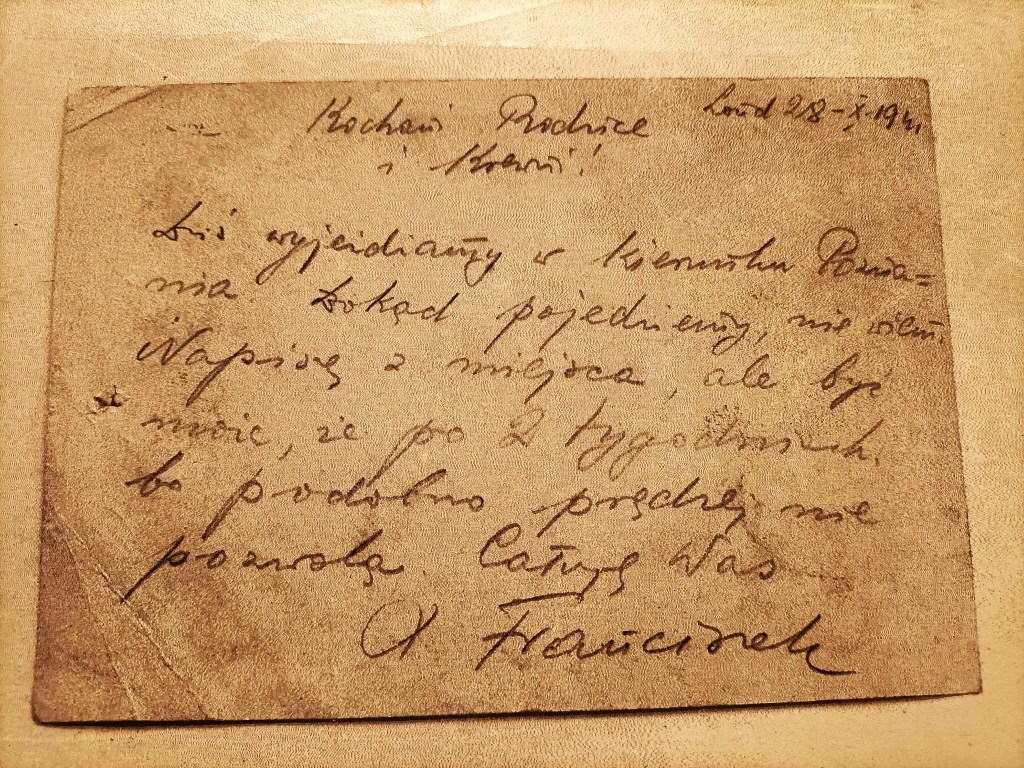 Łódź 28-X.1941
Kochani Rodzice
i Krewni!
Dziś wyjeżdżamy w kierunku Pozna=
nia. Dokąd pojedziemy, nie wiem.
Napiszę z miejsca, ale być
może, że po 2 tygodniach.
bo podobno prędzej nie
pozwolą. Całuję Was
X Franciszek